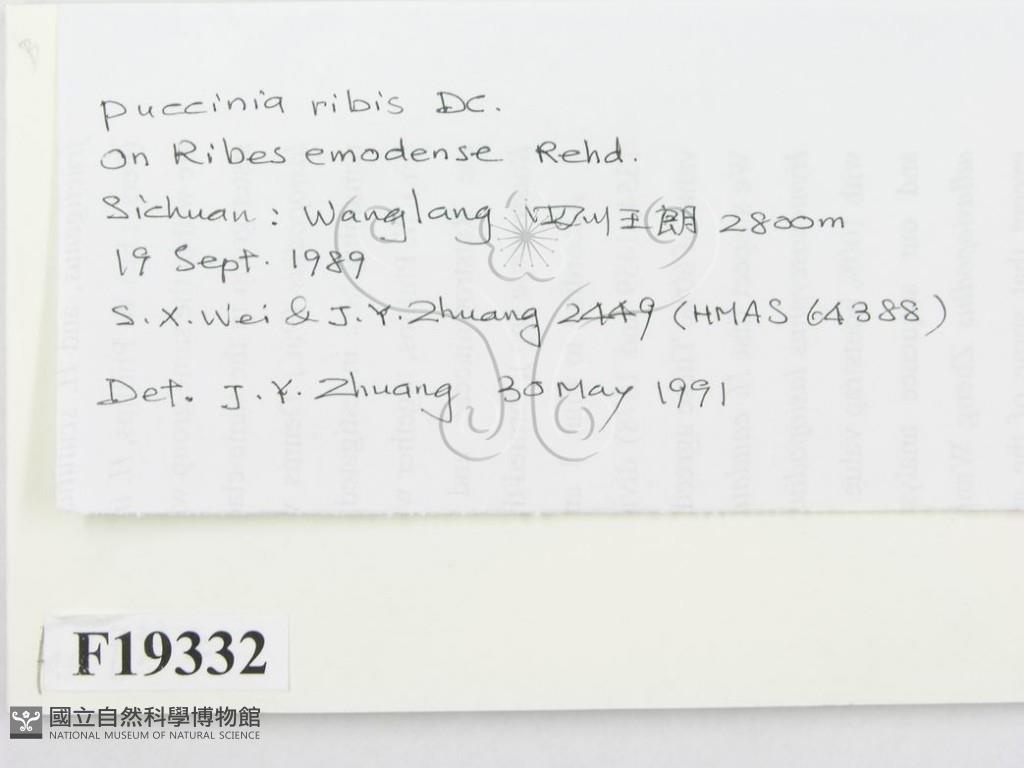 puccinia ribis DC.
On Ribes emodense Rehd.
Sichuan: Wanglang 四川王朗 2800m
19 Sept. 1989
S.X.Wei & J.Y.Zhuang 2449 (HMAS 64388)
Det. J.Y.Zhuang 30 May 1991
F19332
國立自然科學博物館
NATIONAL MUSEUM OF NATURAL SCIENCE